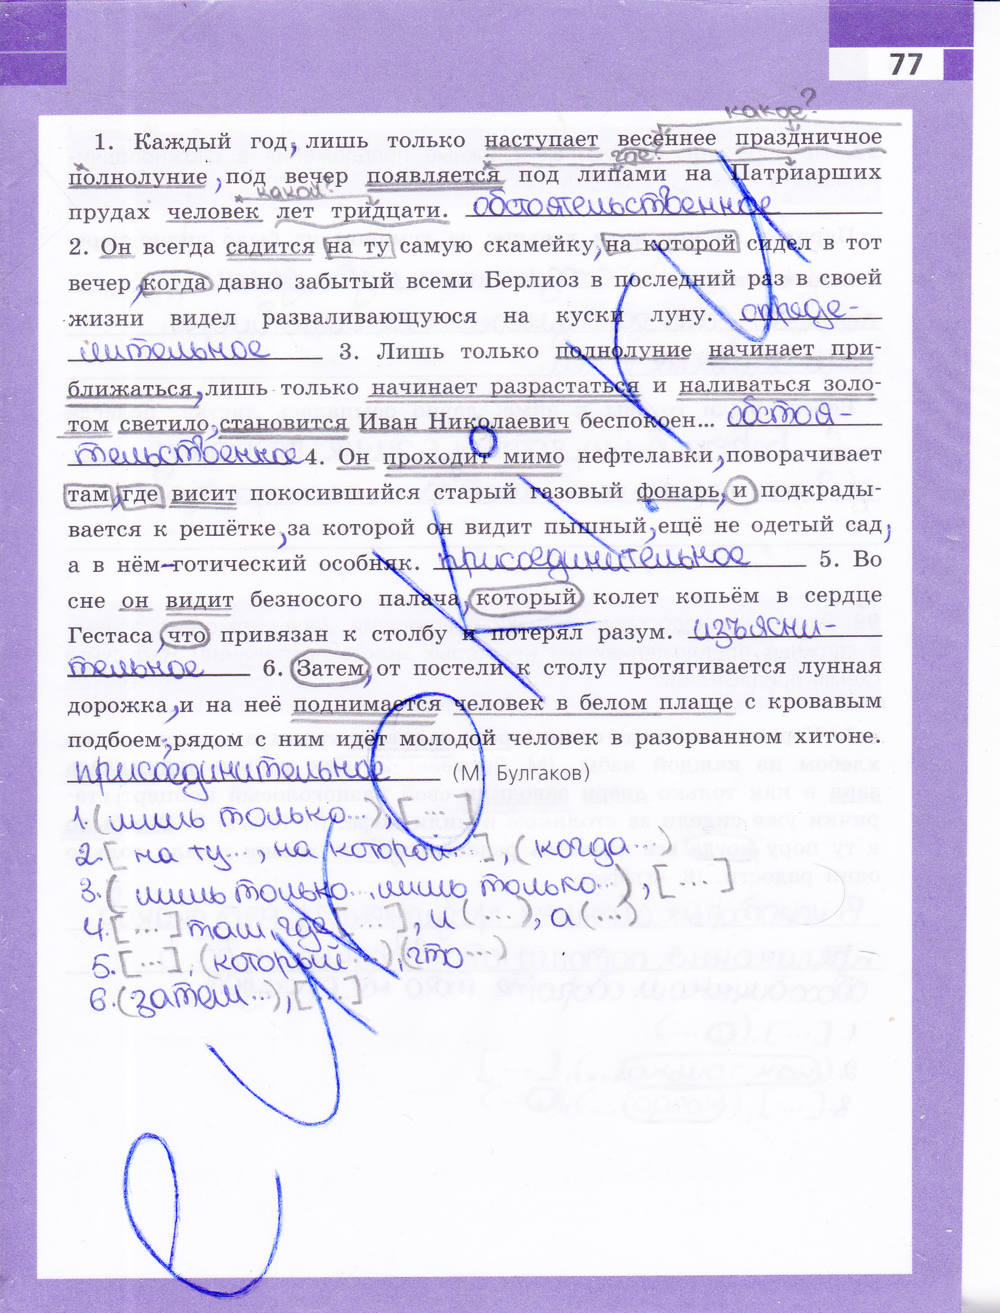 77
какое?
1. Каждый год, лишь только наступает весеннее праздничное
где?
полнолуние, под вечер появляется под липами на Патриарших
какой?
прудах человек лет тридцати. обстоятельственное
2. Он всегда садится на ту самую скамейку, на которой сидел в тот
вечер, когда давно забытый всеми Берлиоз в последний раз в своей
жизни видел разваливающуюся на куски луну. опреде-
лительное 3. Лишь только полнолуние начинает при-
ближаться, лишь только начинает разрастаться и наливаться золо-
том светило, становится Иван Николаевич беспокоен... обстоя-
тельственное 4. Он проходит мимо нефтелавки, поворачивает
там, где висит покосившийся старый газовый фонарь, и подкрады-
вается к решётке, за которой он видит пышный, ещё не одетый сад,
а в нём–готический особняк. присоединительное 5. Во
сне он видит безносого палача, который колет копьём в сердце
Гестаса, что привязан к столбу и потерял разум. изъясни-
тельное 6. Затем, от постели к столу протягивается лунная
дорожка, и на неё поднимается человек в белом плаще с кровавым
подбоем, рядом с ним идёт молодой человек в разорванном хитоне.
присоединительное (М. Булгаков)
1. (лишь только...), [...]
2. [ на ту..., на которой...], (когда...)
3. ( лишь только... лишь только...), [...]
4. [...] там, где [...], и (...), а (...)
5. [...], (который...), (что...)
6. (затем...), [...]